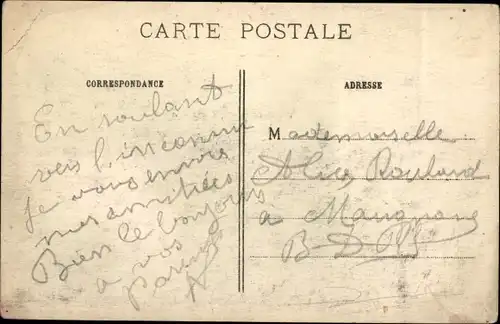 CARTE POSTALE
CORRESPONDANCE
En roulant
vers l'inconnu
Je vous envoie
mes amitiés
Bien le bonjour
a vos
parents
ADRESSE
Mademoiselle
Alice
a